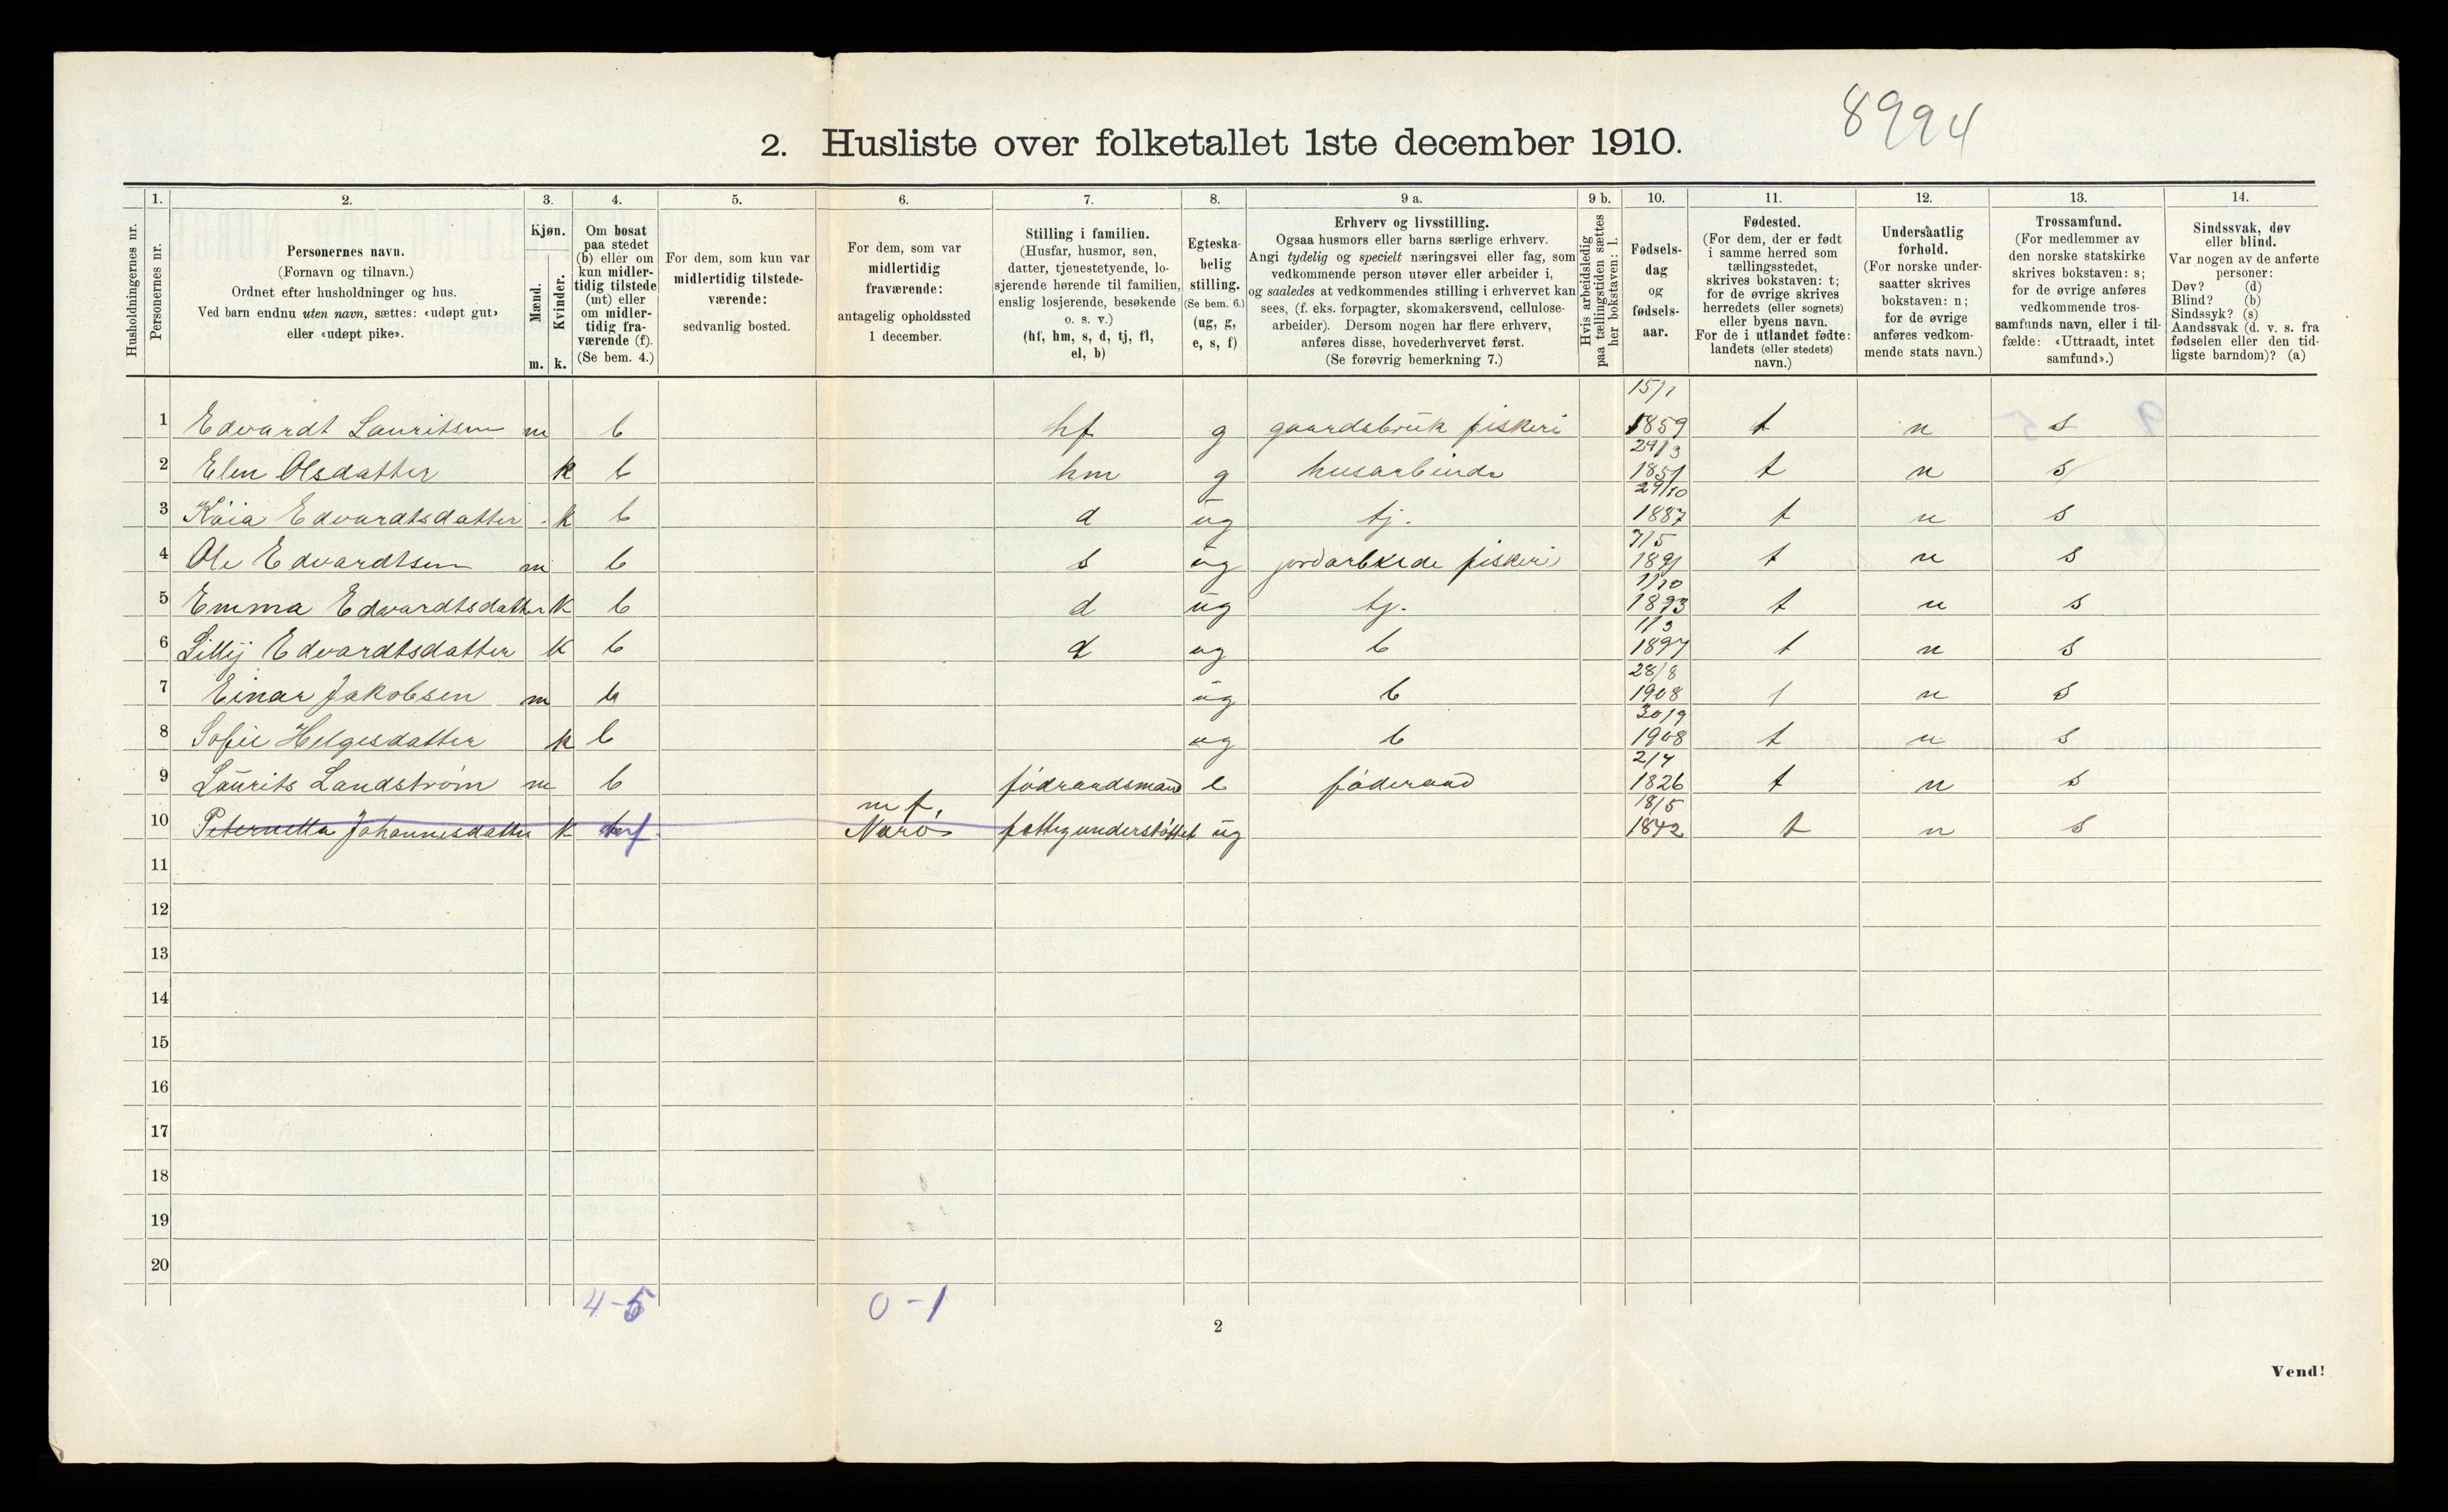 8994
2. Husliste over folketallet 1ste december 1910.
Husholdningernes nr.
1.
Personernes nr.
2.
Personernes navn.
(Fornavn og tilnavn.)
Ordnet efter husholdninger og hus.
Ved barn endnu uten navn, sættes: «udøpt gut»
eller «udøpt pike».
3.
Kjøn.
Mænd.
m.
Kvinder.
k.
4.
Om bosat
paa stedet
(b) eller om
kun midler-
tidig tilstede
(mt) eller
om midler-
tidig fra-
værende (f).
(Se bem. 4.)
5.
For dem, som kun var
midlertidig tilstede-
værende:
sedvanlig bosted.
6.
For dem, som var
midlertidig
fraværende:
antagelig opholdssted
1 december.
7.
Stilling i familien.
(Husfar, husmor, søn,
datter, tjenestetyende, lo-
sjerende hørende til familien,
enslig losjerende, besøkende
o. s. v.)
(hf, hm, s, d, tj, fl,
el, b)
8.
Egteska-
belig
stilling.
(Se bem. 6.)
(ug, g,
e, s, f)
9 a.
Erhverv og livsstilling.
Ogsaa husmors eller barns særlige erhverv.
Angi tydelig og specielt næringsvei eller fag, som
vedkommende person utøver eller arbeider i,
og saaledes at vedkommendes stilling i erhvervet kan
sees, (f. eks. forpagter, skomakersvend, cellulose-
arbeider). Dersom nogen har flere erhverv,
anføres disse, hovederhvervet først.
(Se forøvrig bemerkning 7.)
9 b.
Hvis arbeidsledig
paa tællingstiden sættes
her bokstaven: l.
10.
Fødsels-
dag
og
fødsels-
aar.
11.
Fødested.
(For dem, der er født
i samme herred som
tællingsstedet,
skrives bokstaven: t;
for de øvrige skrives
herredets (eller sognets)
eller byens navn.
For de i utlandet fødte:
landets (eller stedets)
navn.)
12.
Undersaatlig
forhold.
(For norske under-
saatter skrives
bokstaven: n;
for de øvrige
anføres vedkom-
mende stats navn.)
13.
Trossamfund.
(For medlemmer av
den norske statskirke
skrives bokstaven: s;
for de øvrige anføres
vedkommende tros-
samfunds navn, eller i til-
fælde: «Uttraadt, intet
samfund».)
14.
Sindssvak, døv
eller blind.
Var nogen av de anførte
personer:
Døv? (d)
Blind? (b)
Sindssyk? (s)
Aandssvak (d. v. s. fra
fødselen eller den tid-
ligste barndom)? (a)
1 Edvardt Lauritsen m b hf g gaardsbruk fiskeri 15/1 1859 t n s
2 Elen Olsdatter k b hm g husarbeide 29/3 1851 t n s
3 Kaia Edvardtsdatter k b d ug tj. 29/10 1887 t n s
4 Ole Edvardtsen m b s ug jordarbeide fiskeri 7/5 1891 t n s
5 Emma Edvardtsdatter k b d ug tj. 1/10 1893 t n s
6 Lillij Edvardtsdatter k b d ug b 1/3 1897 t n s
7 Einar Jakobsen m b ug b 28/8 1908 t n s
8 Sofie Helgesdatter k b ug b 30/9 1908 t n s
9 Laurits Landstrøm m b fødraadsmand e føderaad 2/7 1826 t n s
10 Peternella Johannesdatter k f m f. Narö fattigunderstøttet ug 18/5 1842 t n s
11
12
13
14
15
16
17
18
19
20
4-5
0-1
2
Vend!